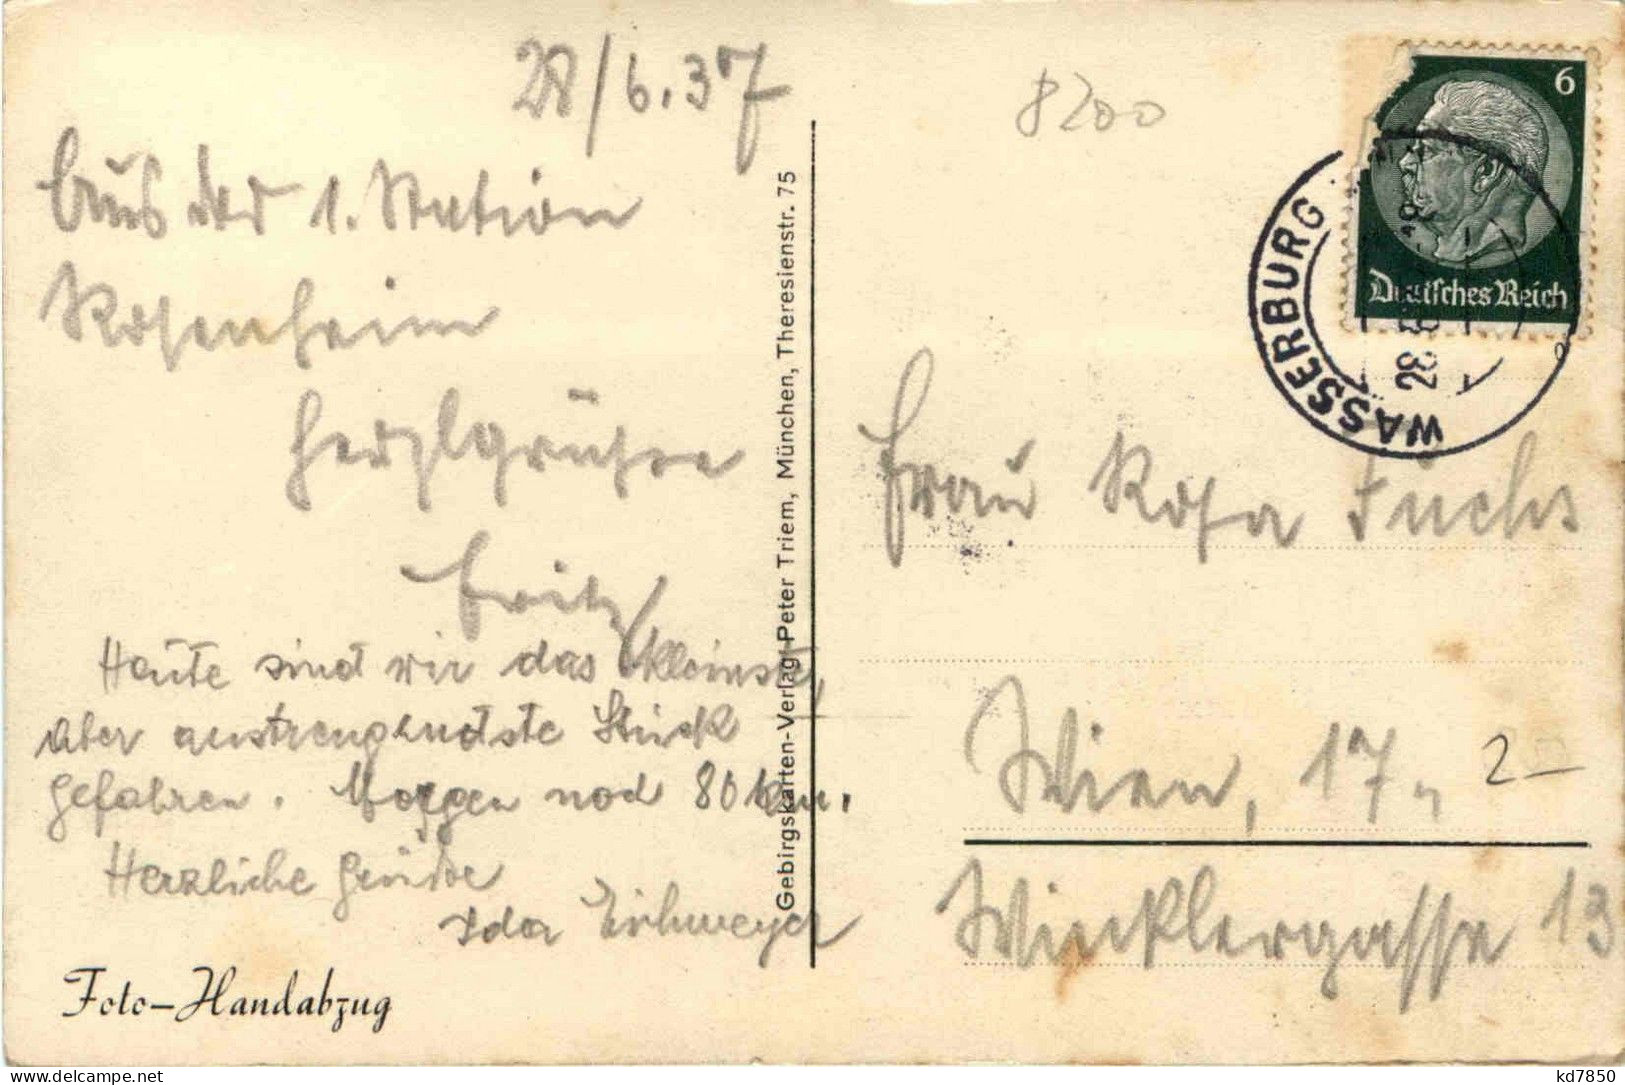 28/6.37
Aus der 1. Station
Rosenheim
Herzlgrüsse
Fritz
Heute sind wir das kleinste,
aber anstrengendste Stück
gefahren. Morgen noch 80 km.
Herzliche Grüße
Ida
Foto-Handabzug
Gebirgskarten-Verlag Peter Triem, München, Theresienstr. 75
8200
6
Deutsches Reich
WASSERBURG
28
Frau Rosa Fuchs
Wien, 17.,
2 –
Wincklergasse 13
kd7850